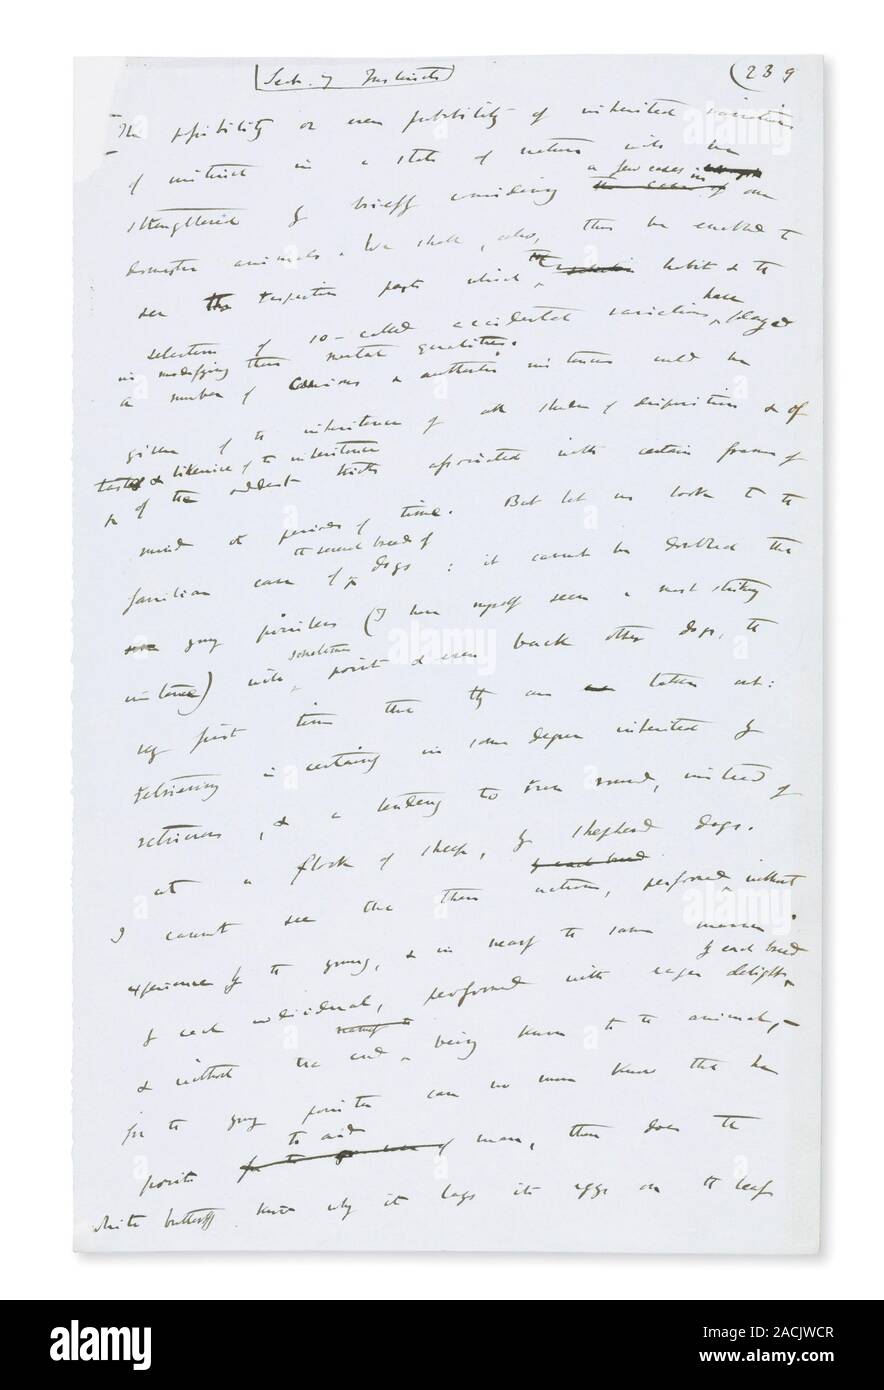 Sect. 7 Instincts (239
The possibility or even probability of inherited variations
of instinct in a state of nature will be
a few cases in
strengthened by briefly considering the cases of our
domestic animals. We shall, also, thus be enabled to
see the respective parts which the habit & the
selection of so-called accidental variations have played
in modifying these mental qualities.
a number of curious & authentic instances could be
given of the inheritance of all shades of disposition & of
tastes & likewise of the inheritance
of the oddest tricks associated with certain frames of
mind or periods of time. But let us look to the
the several breeds of
familiar case of dogs: it cannot be doubted that
young pointers (I have myself seen a most striking
instance) will sometimes point & even back other dogs, the
very first time that they are taken out:
retrieving is certainly in some degree inherited by
retrievers, & a tendency to run round, instead of
at a flock of sheep, by shepherd dogs.
by each breed
I cannot see that these actions, performed without
experience by the young, & in nearly the same manner
by each breed
by each individual, performed with eager delight
& without the end being known to the animal,–
for the young pointer can no more know that he
to aid
points for the use of man, than does the
white butterfly know why it lays its eggs on the leaf
alamy
2ACJWCR
www.alamy.com